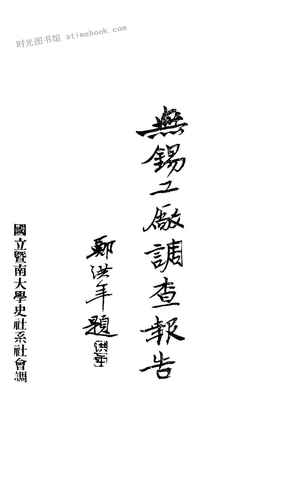 时光图书馆 atimebook.com
無錫工廠調查報告
鄭洪年題
國立暨南大學史社系社會調